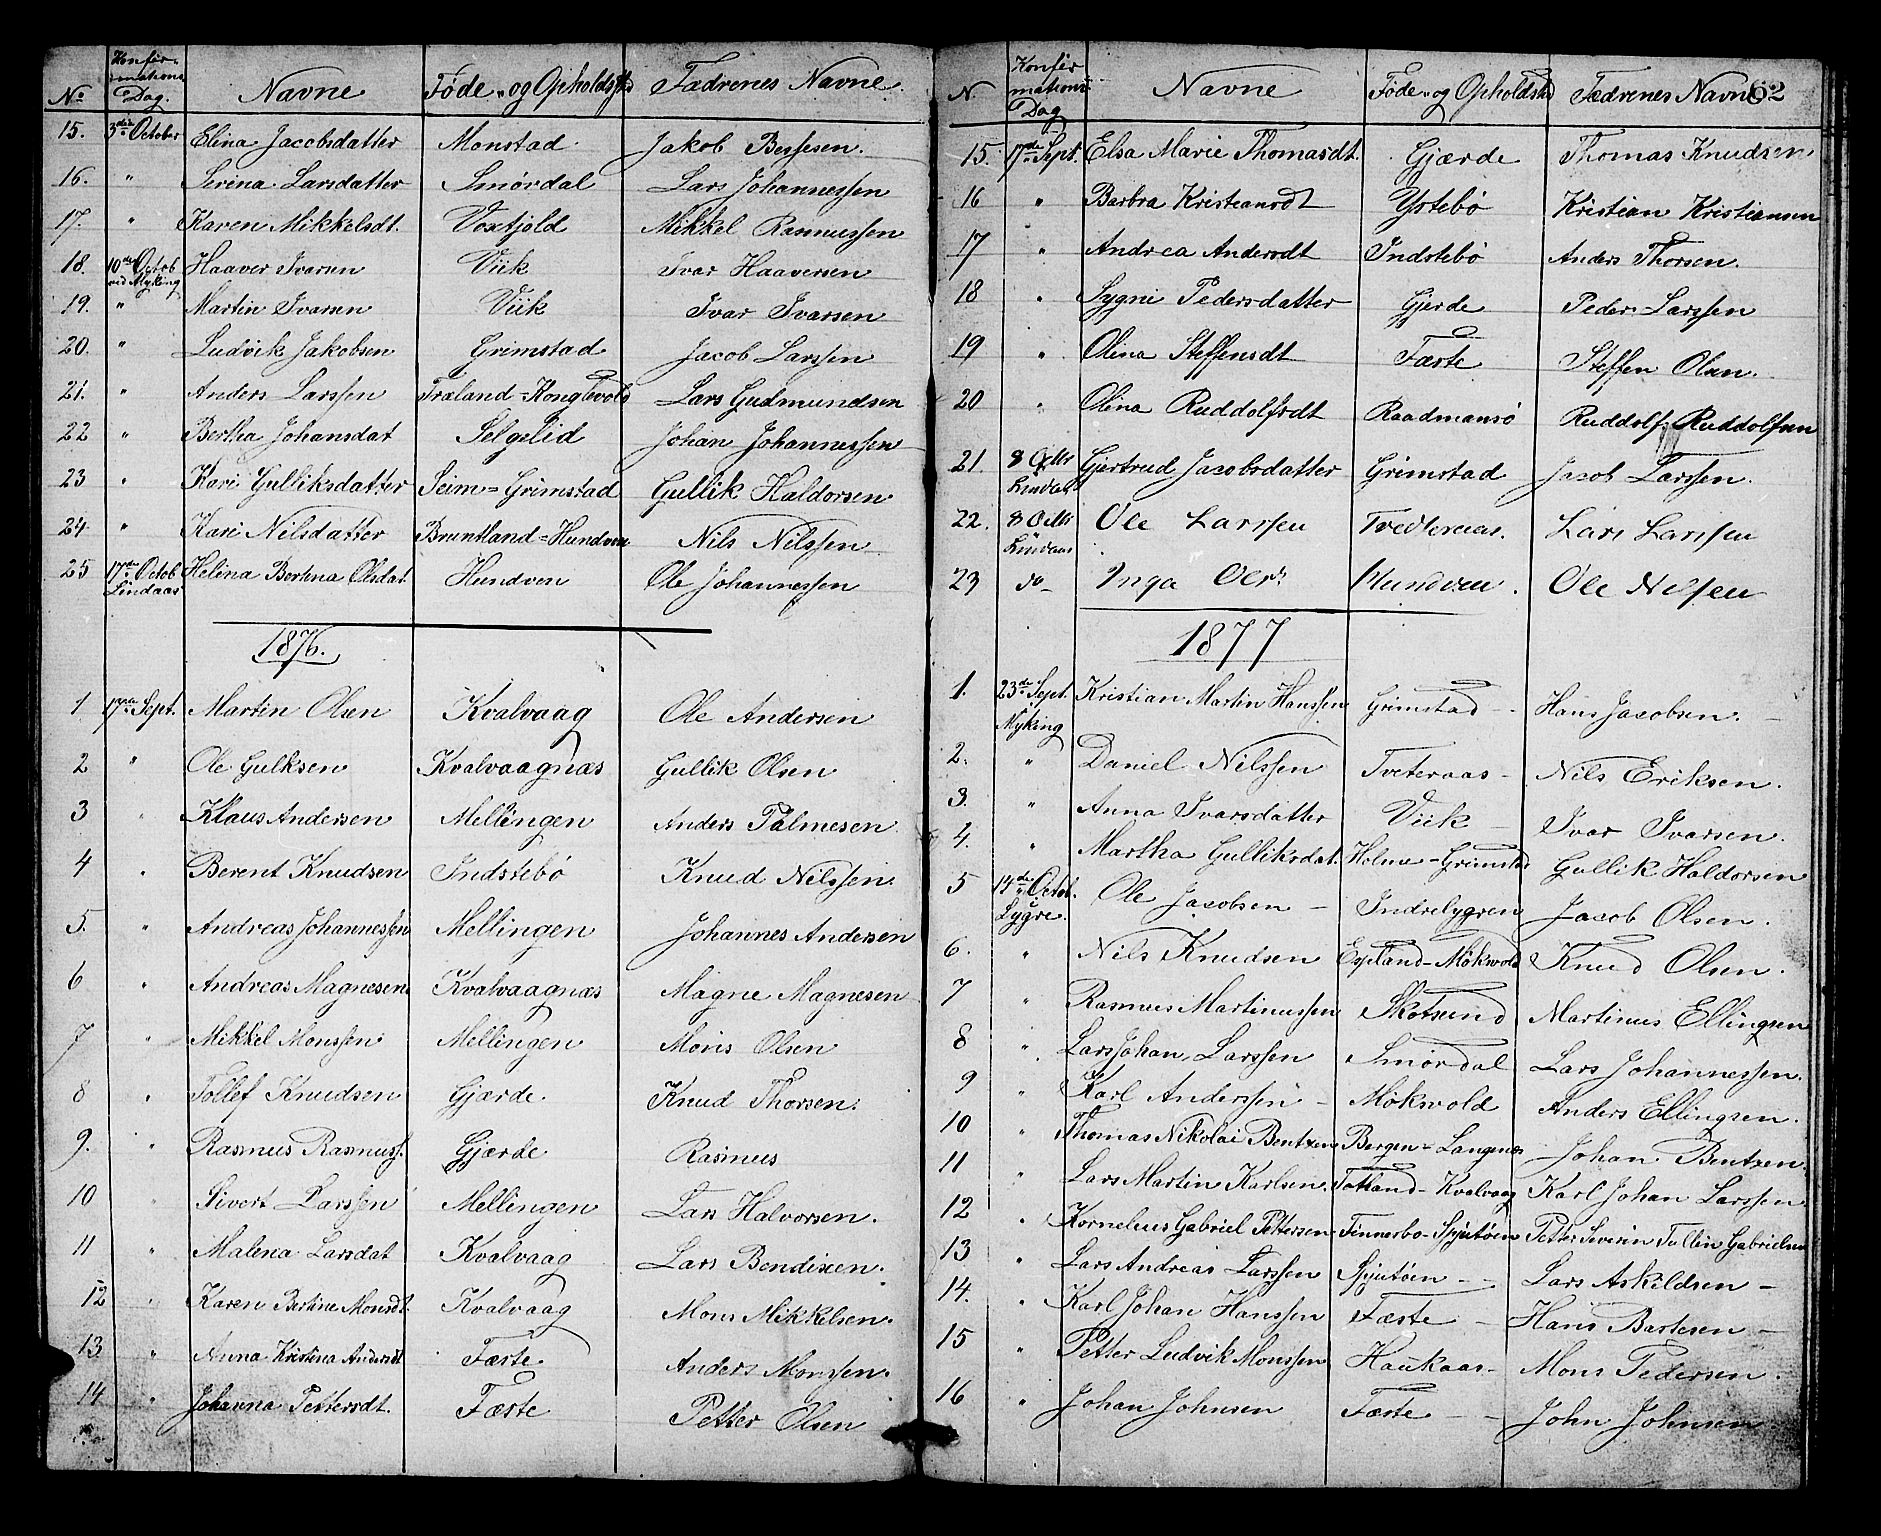 No Konfirmations Dag. Navne Føde- og Opholdsstd Fædrenes Navne.
15. 3die October Elina Jacobsdatter Monstad. Jakob Bessesen.
16. " Serina Larsdatter Smørdal Lars Johannessen
17. " Karen Mikkelsdt. Voxtjold Mikkel Rasmussen
18. 10de Octob ved Myking Haaver Ivarsen Viik Ivar Haaversen
19. " Martin Ivarsen Viik Ivar Ivarsen
20. " Ludvik Jakobsen Grimstad Jacob Larssen
21. " Anders Larssen Træland=Konglevold Lars Gudmundsen
22 " Bertha Johansdat Selgelid Johan Johannessen
23 " Kari Gulliksdatter Seim=Grimstad Gullik Haldorsen
24. " Kari Nilsdatter Bruntland=Hundven Nils Nilssen
25 17de Octob Lindaas Helina Bertina Olsdat Hundven Ole Johannessen
1876.
1 17de Sept. Martin Olsen Kvalvaag Ole Andersen
2 " Ole Gulksen Kvalvaagnæs Gullik Olsen
3 " Klaus Andersen Mellingen Anders Palmesen
4 " Berent Knudsen Indstebø Knud Nilssen.
5. " Andreas Johannessen Mellingen Johannes Andersen
6 " Andreas Magnesen Kvalvaagnæs Magne Magnesen
7 " Mikkel Monssen Mellingen Mons Olsen
8 " Tollef Knudsen Gjærde. Knud Thorsen.
9. " Rasmus Rasmuss. Gjærde Rasmus
10 " Sivert Larssen Mellingen Lars Halvorsen.
11 " Malena Larsdat Kvalvaag Lars Bendixen.
12 " Karen Bertine Monsdt. Kvalvaag Mons Mikkelsen.
13 " Anna Kristina Andersdt Fæste. Anders Monssen.
14 " Johanna Pettersdt. Fæste Petter Olsen
N Konfirmations Dag Navne Føde- og Opholdstd Fædrenes Navne 62
15. 17de Sept. Elsa Marie Thomasdt. Gjærde Thomas Knudsen
16 " Barbra Kristiansdt Ystebø Kristian Kristiansen
17 " Andrea Andersdt Indstebø Anders Thorsen.
18 " Sygni Pedersdatter Gjerde Peder Larssen
19 " Olina Steffensdt Fæste Steffen Olsen.
20 " Olina Ruddolfsdt Raadmansø Ruddolf Ruddolfsen
21. 8 Octbr Lindaas Gjertrud Jacobsdatter Grimstad Jacob Larssen.
22. 8 Octbr Lindaas Ole Larssen Tvedteraas. Lars Larssen
23 do Inga Olsdt Hundven. Ole Nilsen
1877
1. 23de Sept. Myking Kristian Martin Hanssen Grimstad - Hans Jacobsen. -
2. " Daniel Nilssen Tveteraas - Nils Eriksen.
3. " Anna Ivarsdatter Viik - Ivar Ivarsen.
4. " Martha Gulliksdat. Holme-Grimstad Gullik Haldorsen
5 14de Octob. Lygre. Ole Jacobsen - Indrelygren Jacob Olsen.
6. " Nils Knudsen Espeland-Mökvold Knud Olsen.
7 " Rasmus Martinussen Skotsund Martinus Ellingsen
8 " Lars Johan Larssen Smørdal Lars Johannessen.
9 " Karl Anderssen - Mökvold Anders Ellingsen.
10 " Thomas Nikolai Bentzen Bergen-Langenæs Johan Bentzen.
11 " Lars Martin Karlsen. Totland-Kvalvaag Karl Johan Larssen
12 " Kornelius Gabriel Pettersen Finnesbo-Spjutøen Petter Severin Tullin Gabrielsen
13 " Lars Andreas Larssen Spjutøen - Lars Askildsen -
14. " Karl Johan Hanssen Fæste - Hans Bartesen -
15 " Petter Ludvik Monssen Haukaas - Mons Pedersen.
16 " Johan Johnsen Fæste - - John Johnsen